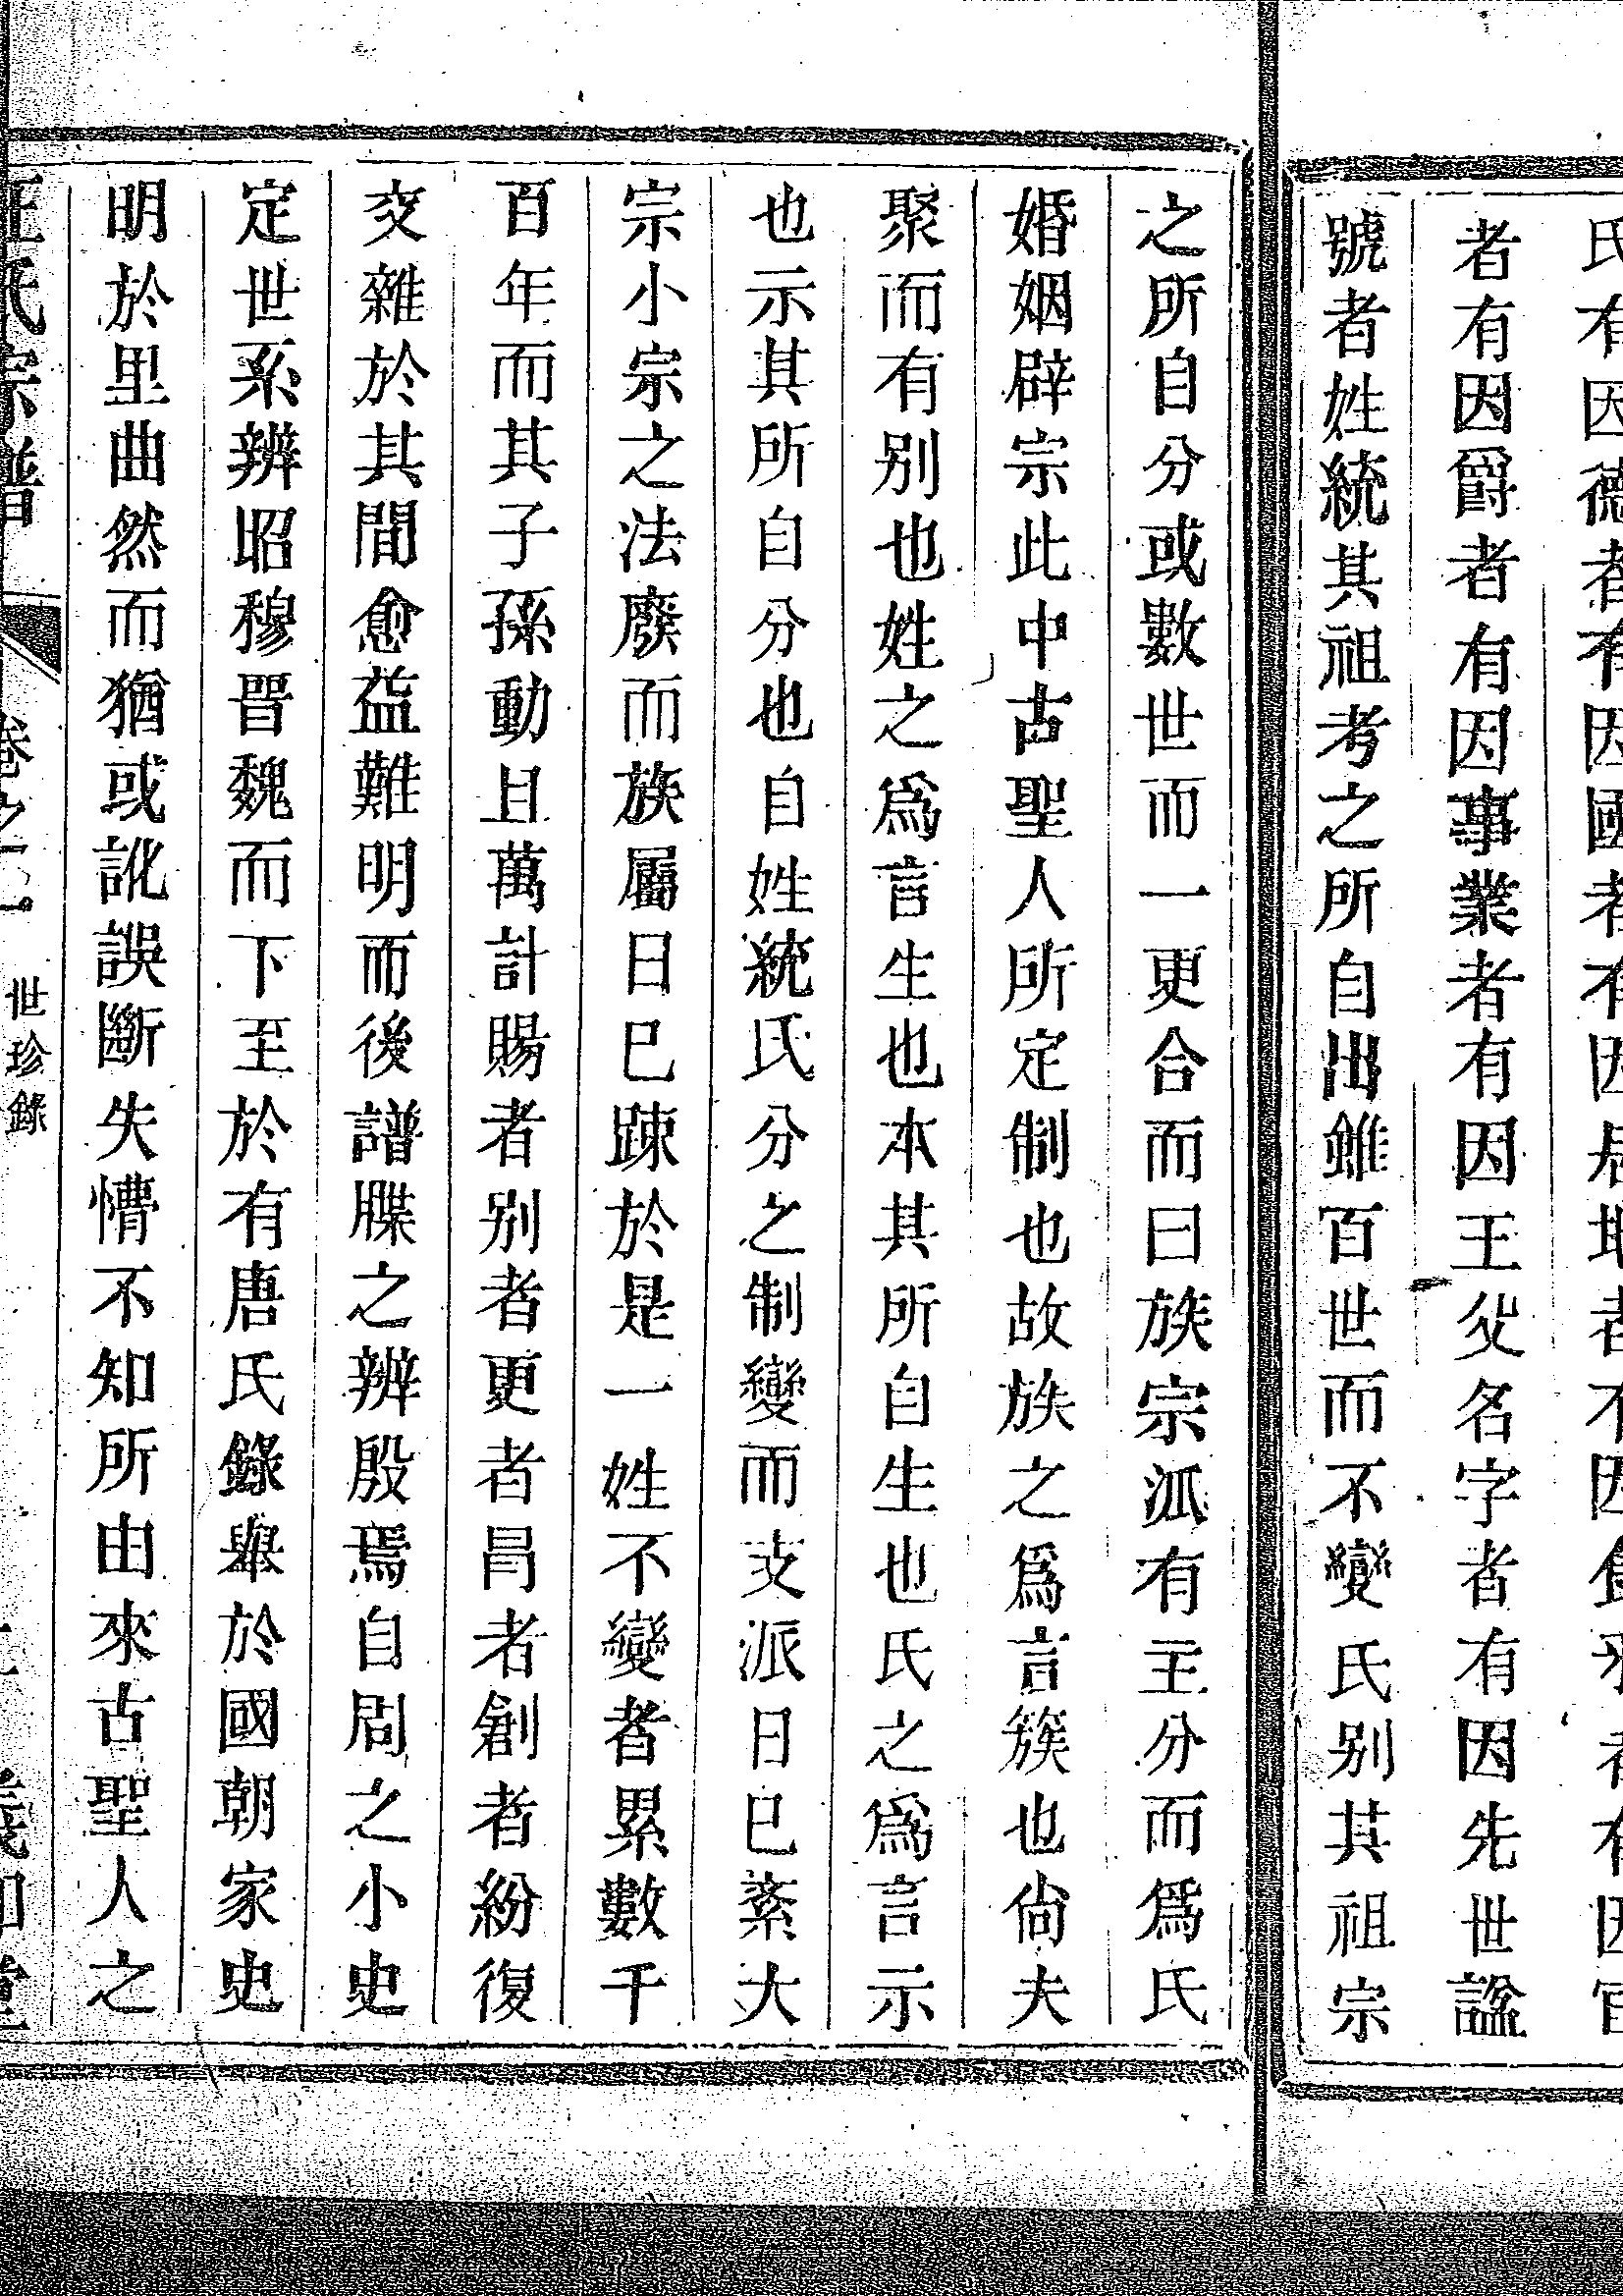 氏有因德者有因國者有因居地者
者有因爵者有因事業者有因王父名字者有因先世諡
號者姓統其祖考之所自出雖百世而不變氏别其祖宗
之所自分或數世而一更合而曰族宗派有主分而爲氏
婚姻辟宗此中古聖人所定制也故族之爲言簇也尙夫
聚而有别也姓之爲言生也本其所自生也氏之爲言示
也示其所自分也自姓統氏分之制變而支派日已紊大
宗小宗之法廢而族屬日已踈於是一姓不變者累數千
百年而其子孫動且萬計賜者别者更者冐者創者紛復
交雜於其間愈益難明而後譜牒之辨殷焉自周之小史
定世系辨昭穆晋魏而下至於有唐氏錄舉於國朝家史
明於里曲然而猶或訛誤斷失懵不知所由來古聖人之
汪氏宗譜 卷之一 世珍錄